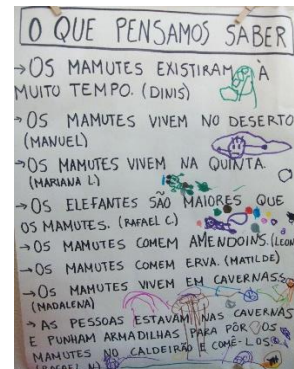 O QUE PENSAMOS SABER
→ OS MAMUTES EXISTIRAM À
MUITO TEMPO. (DINIS)
→ OS MAMUTES VIVEM NO DESERTO
(MANUEL)
→ OS MAMUTES VIVEM NA QUINTA.
(MARIANA L.)
→ OS ELEFANTES SÃO MAIORES QUE
OS MAMUTES. (RAFAEL C.)
→ OS MAMUTES COMEM AMENDOINS. (LEON
→ OS MAMUTES COMEM ERVA. (MATILDE)
→ OS MAMUTES VIVEM EM CAVERNAS.
(MADALENA)
→ AS PESSOAS ESTAVAM NAS CAVERNAS
E PUNHAM ARMADILHAS PARA PÔR OS
MAMUTES NO CALDEIRÃO E COMÊ-LOS.
(RAFAEL N.)